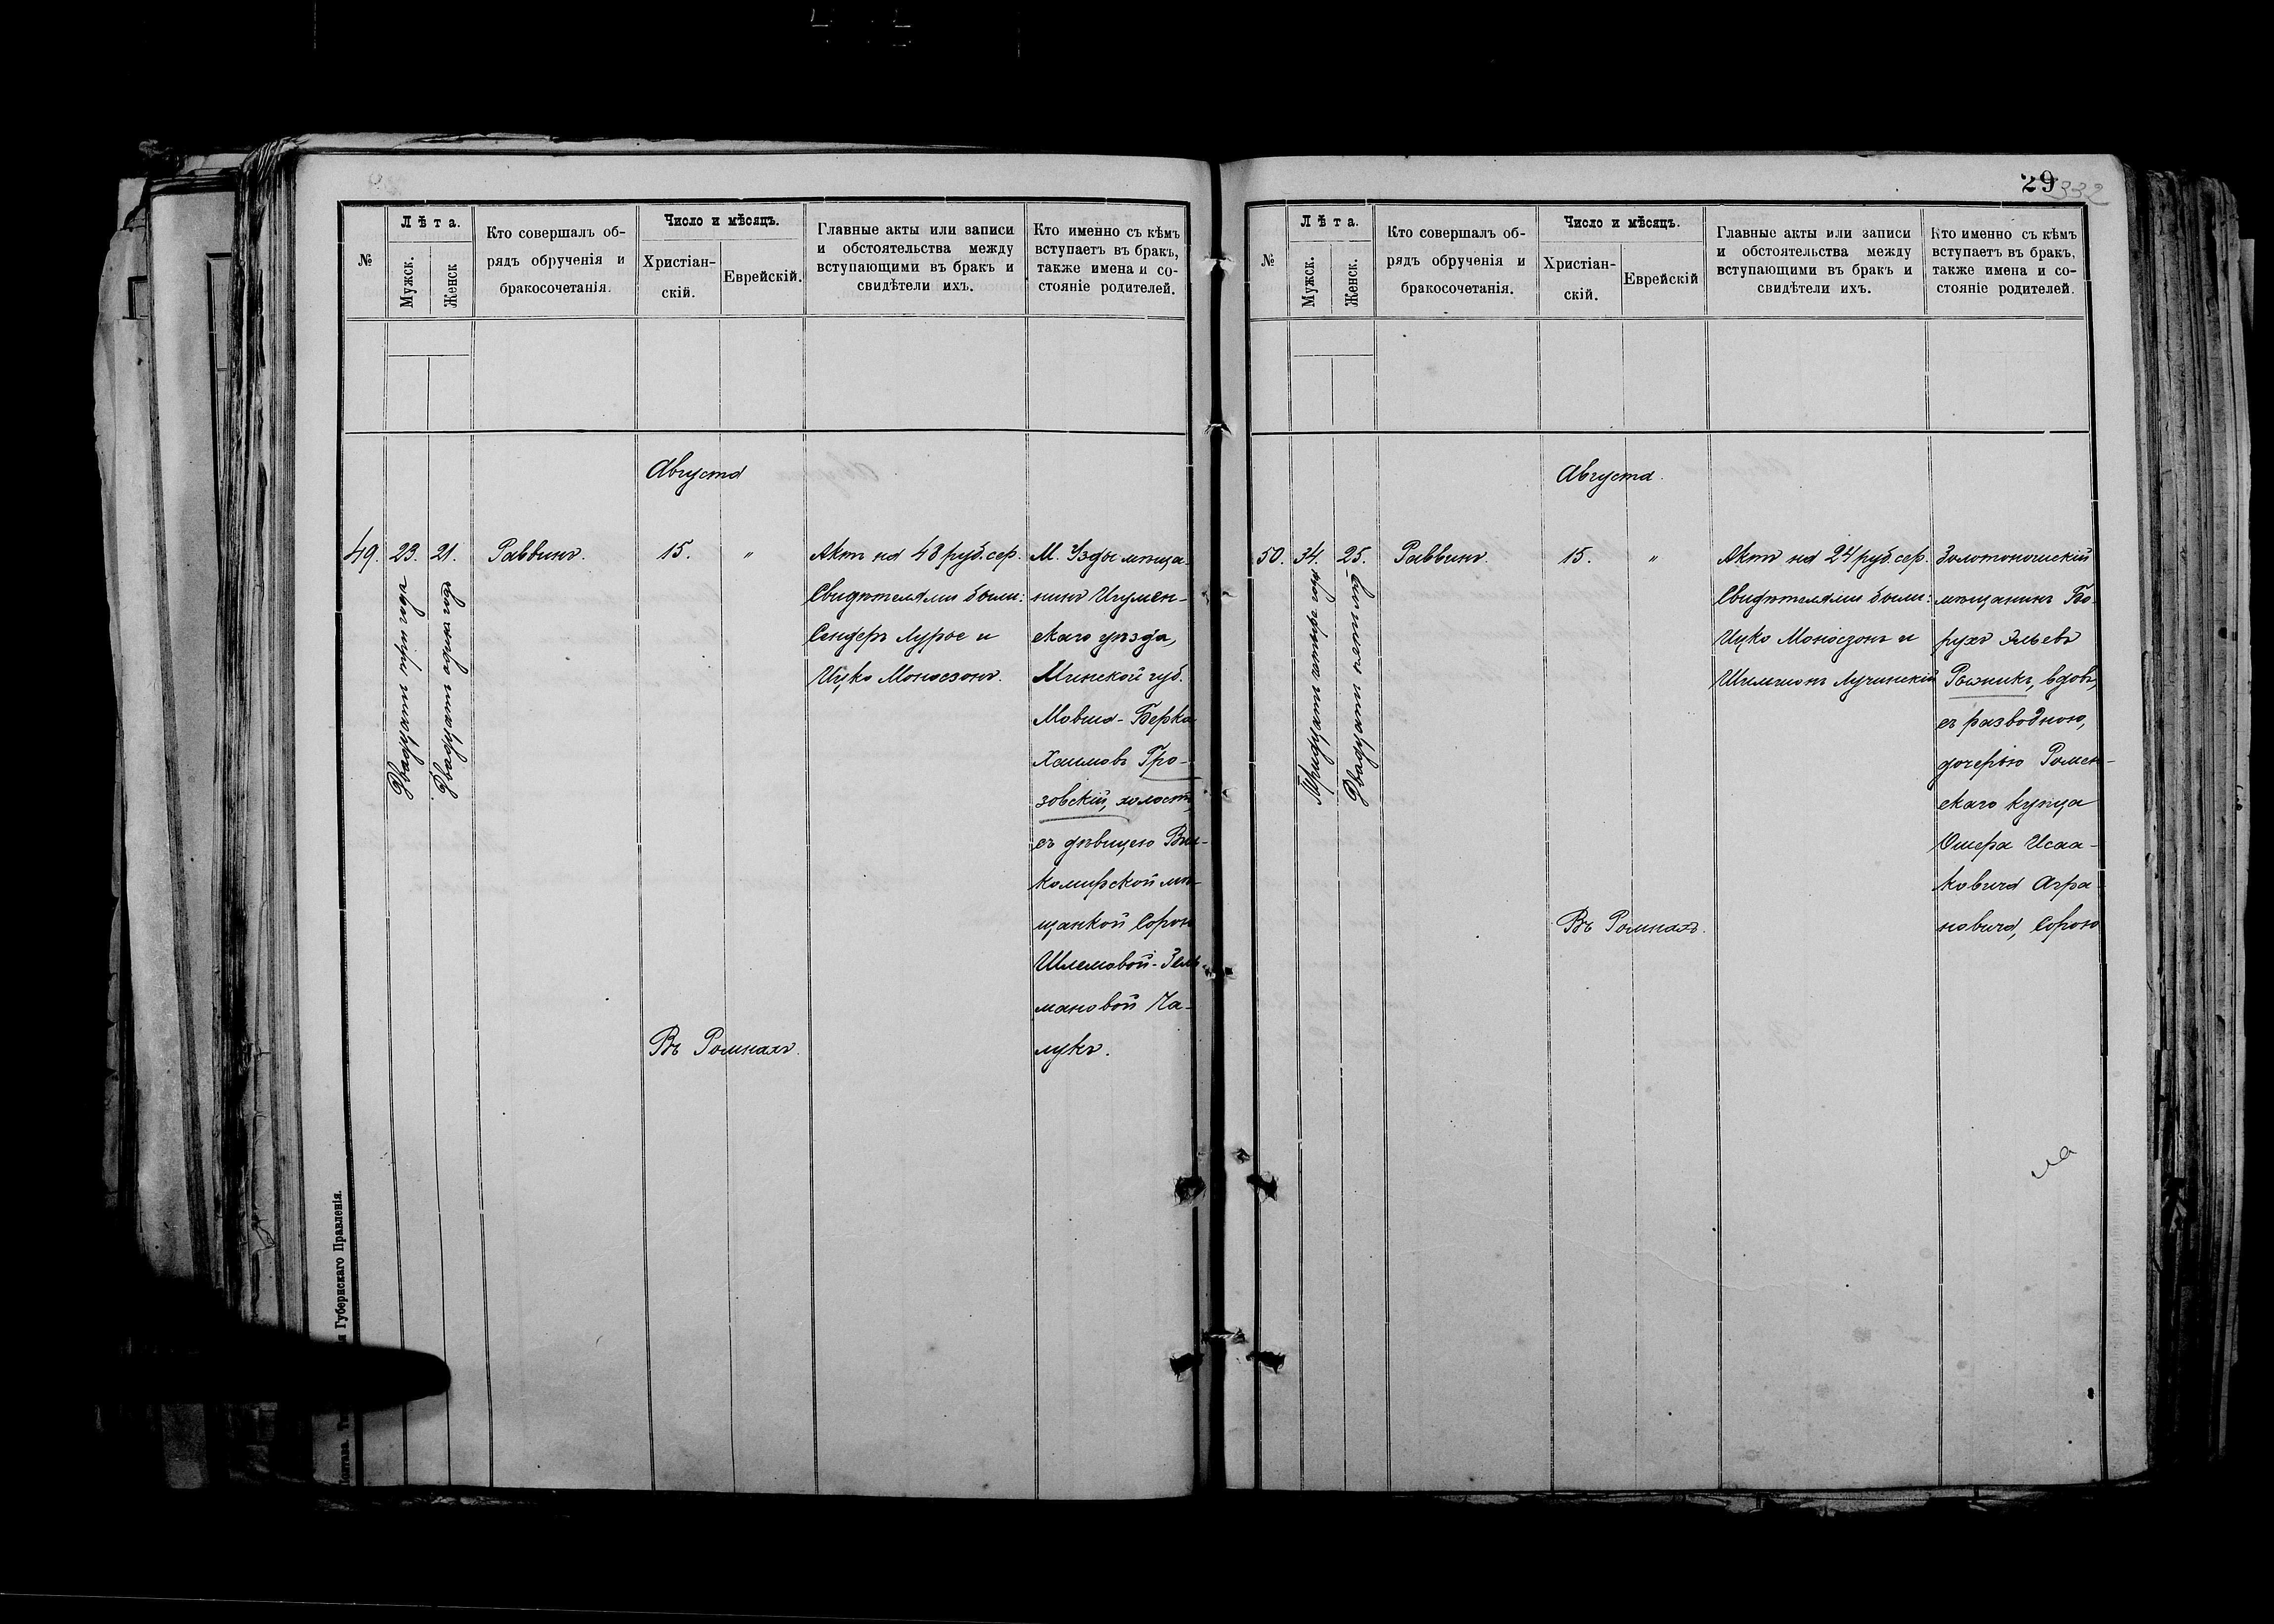 Лѣта.
№
Мужск.
Женск
Кто совершалъ об-
рядъ обрученія и
бракосочетанія.
Число и мѣсяцъ.
Христіан-
скій.
Еврейскій.
Главные акты или записи
и обстоятельства между
вступающими въ бракъ и
свидѣтели ихъ.
Кто именно съ кѣмъ
вступаетъ въ бракъ,
также имена и со-
стояніе родителей.
Августа
49.
23.
Двадцать три
21.
Двадцать одного
Раввинъ.
15.
"
Въ Ромнахъ.
Актъ на 48 руб. сер.
Свидѣтелями были:
Сендеръ Лурье и
Ицко Моносзонъ.
М. Узды мѣща-
нинъ Игумен-
скаго уѣзда,
Минской губ.
Мовша-Берка
Хаимовъ Гро-
зовскій, холостъ,
съ дѣвицею Виль-
комирской мѣ-
щанкой Сорою
Шлемовой-Зель-
мановой Ча-
лукъ.
Губернскаго Правленія.
29
332
№
Лѣта.
Мужск.
Женск.
Кто совершалъ об-
рядъ обрученія и
бракосочетанія.
Число и мѣсяцъ.
Христіан-
скій.
Еврейскій
Главные акты или записи
и обстоятельства между
вступающими въ бракъ и
свидѣтели ихъ.
Кто именно съ кѣмъ
вступаетъ въ бракъ,
также имена и со-
стояніе родителей.
Августа.
50.
34.
Тридцать четыре года
25.
Двадцать пять лѣтъ
Раввинъ.
15.
"
Въ Ромнахъ.
Актъ на 24 руб. сер.
Свидѣтелями были:
Ицко Моносзонъ и
Шимшонъ Лучинскій
Золотоношскій
мѣщанинъ Бо-
рухъ Эльевъ
вдовъ,
съ разводною,
дочерью Ромен-
скаго купца
Ошера Исаа-
ковича Агра-
новича, Сорою